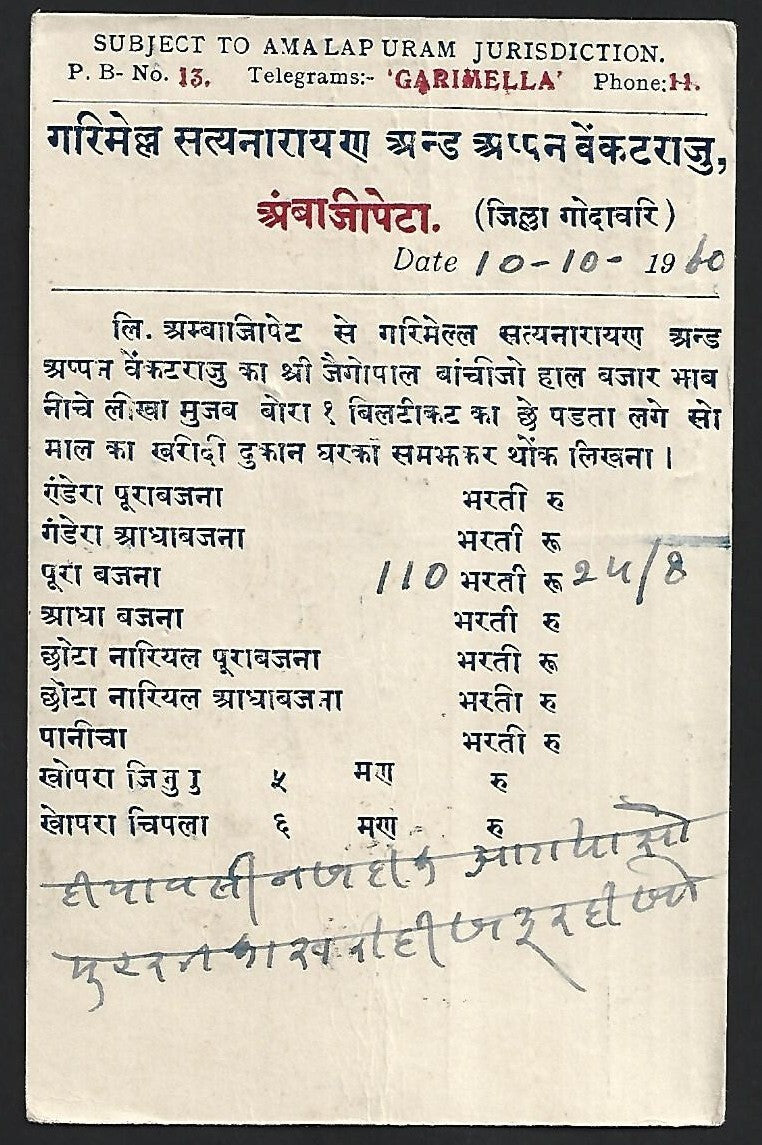 SUBJECT TO AMALAPURAM JURISDICTION.
P. B- No. 13. Telegrams:- 'GARIMELLA' Phone:11.
गरिमेल्ल सत्यनारायण अन्ड अप्पन वेंकटराजु,
अंबाजीपेटा. (जिल्ला गोदावरि)
Date 10-10- 1960
लि. अम्बाजिपेट से गरिमेल्ल सत्यनारायण अन्ड
अप्पन वेंकटराजु का श्री जैगोपाल बांचीजो हाल बजार भाब
नीचे लीखा मुजब बोरा १ बिलटीकट का छे पडता लगे सो
माल का खरीदी दुकान घरकी समझकर थोंक लिखना ।
गंडेरा पूराबजना भरती रु
गंडेरा आधाबजना भरती रू
पूरा बजना 110 भरती रू 24/8
आधा बजना भरती रु
छोटा नारियल पूराबजना भरती रू
छोटा नारियल आधाबजना भरती रु
पानीचा भरती रु
खोपरा जिनु ५ मण रु
खोपरा चिपला ६ मण रु
नजदीक